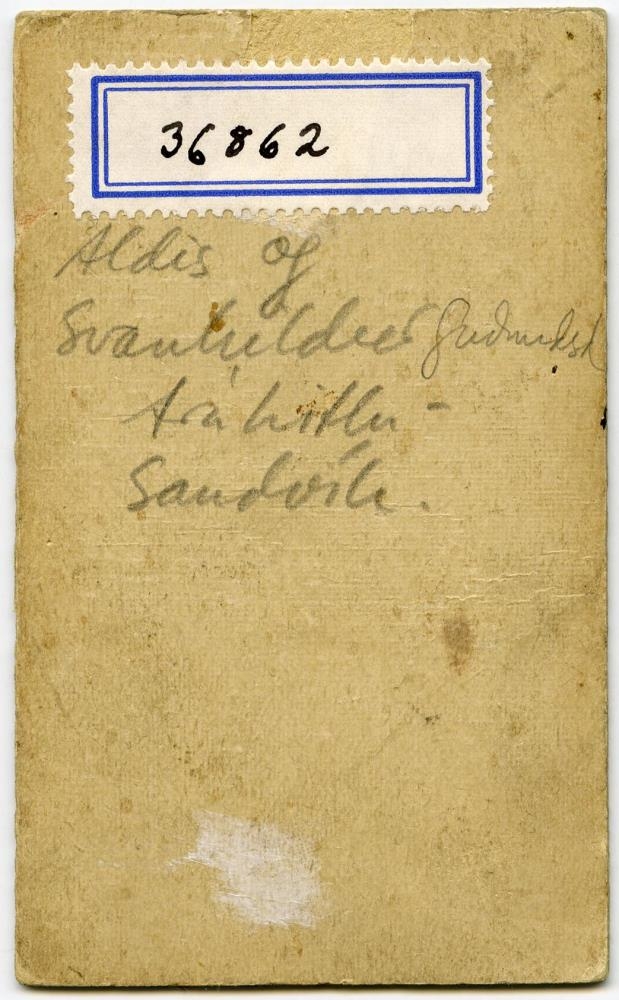 36862
Aldis og
Svanhildur Guðmundsd
frá Litlu -
Sandvík.